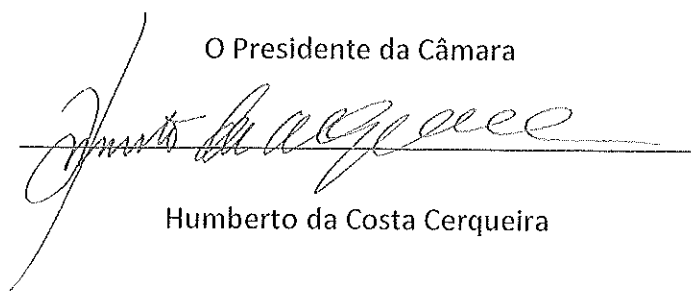 O Presidente da Câmara
Humberto da Costa Cerqueira